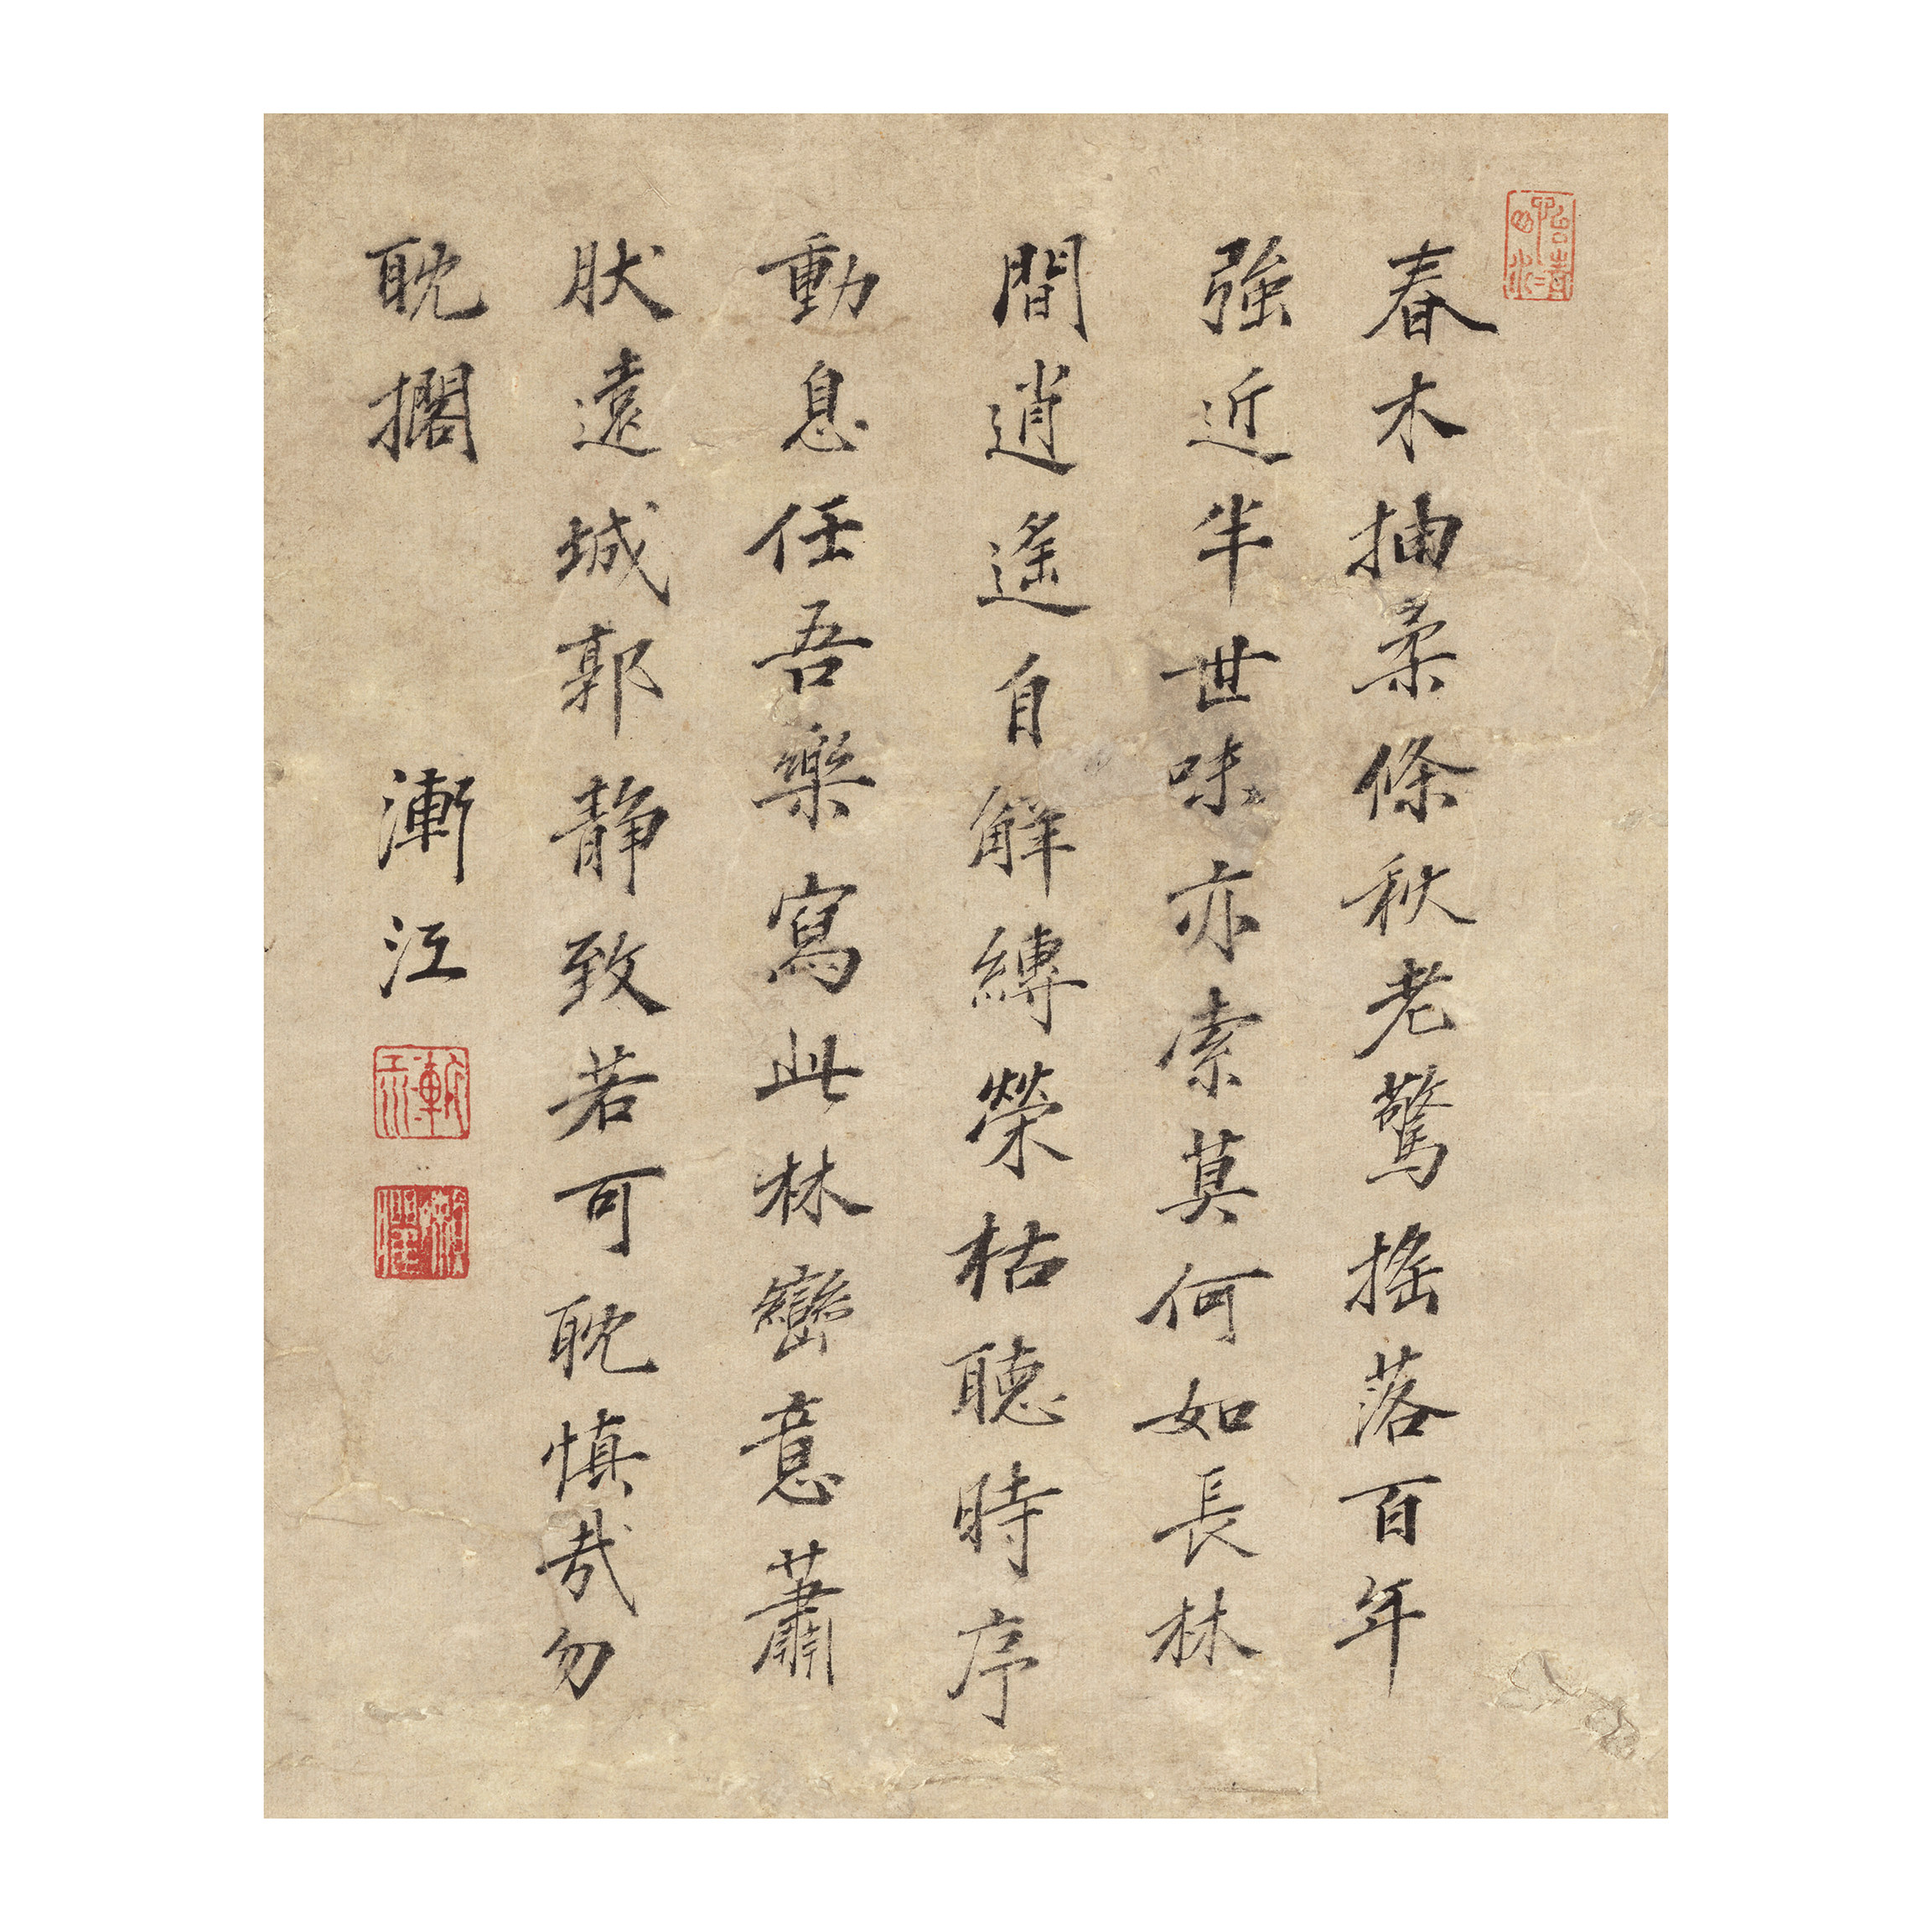 春木抽柔條秋老驚搖落百年
強近半世味亦索莫何如長林
間逍遙自解縛榮枯聽時序
動息任吾樂寫此林巒意蕭
狀遠城郭靜致若可耽慎哉勿
耽擱
漸江